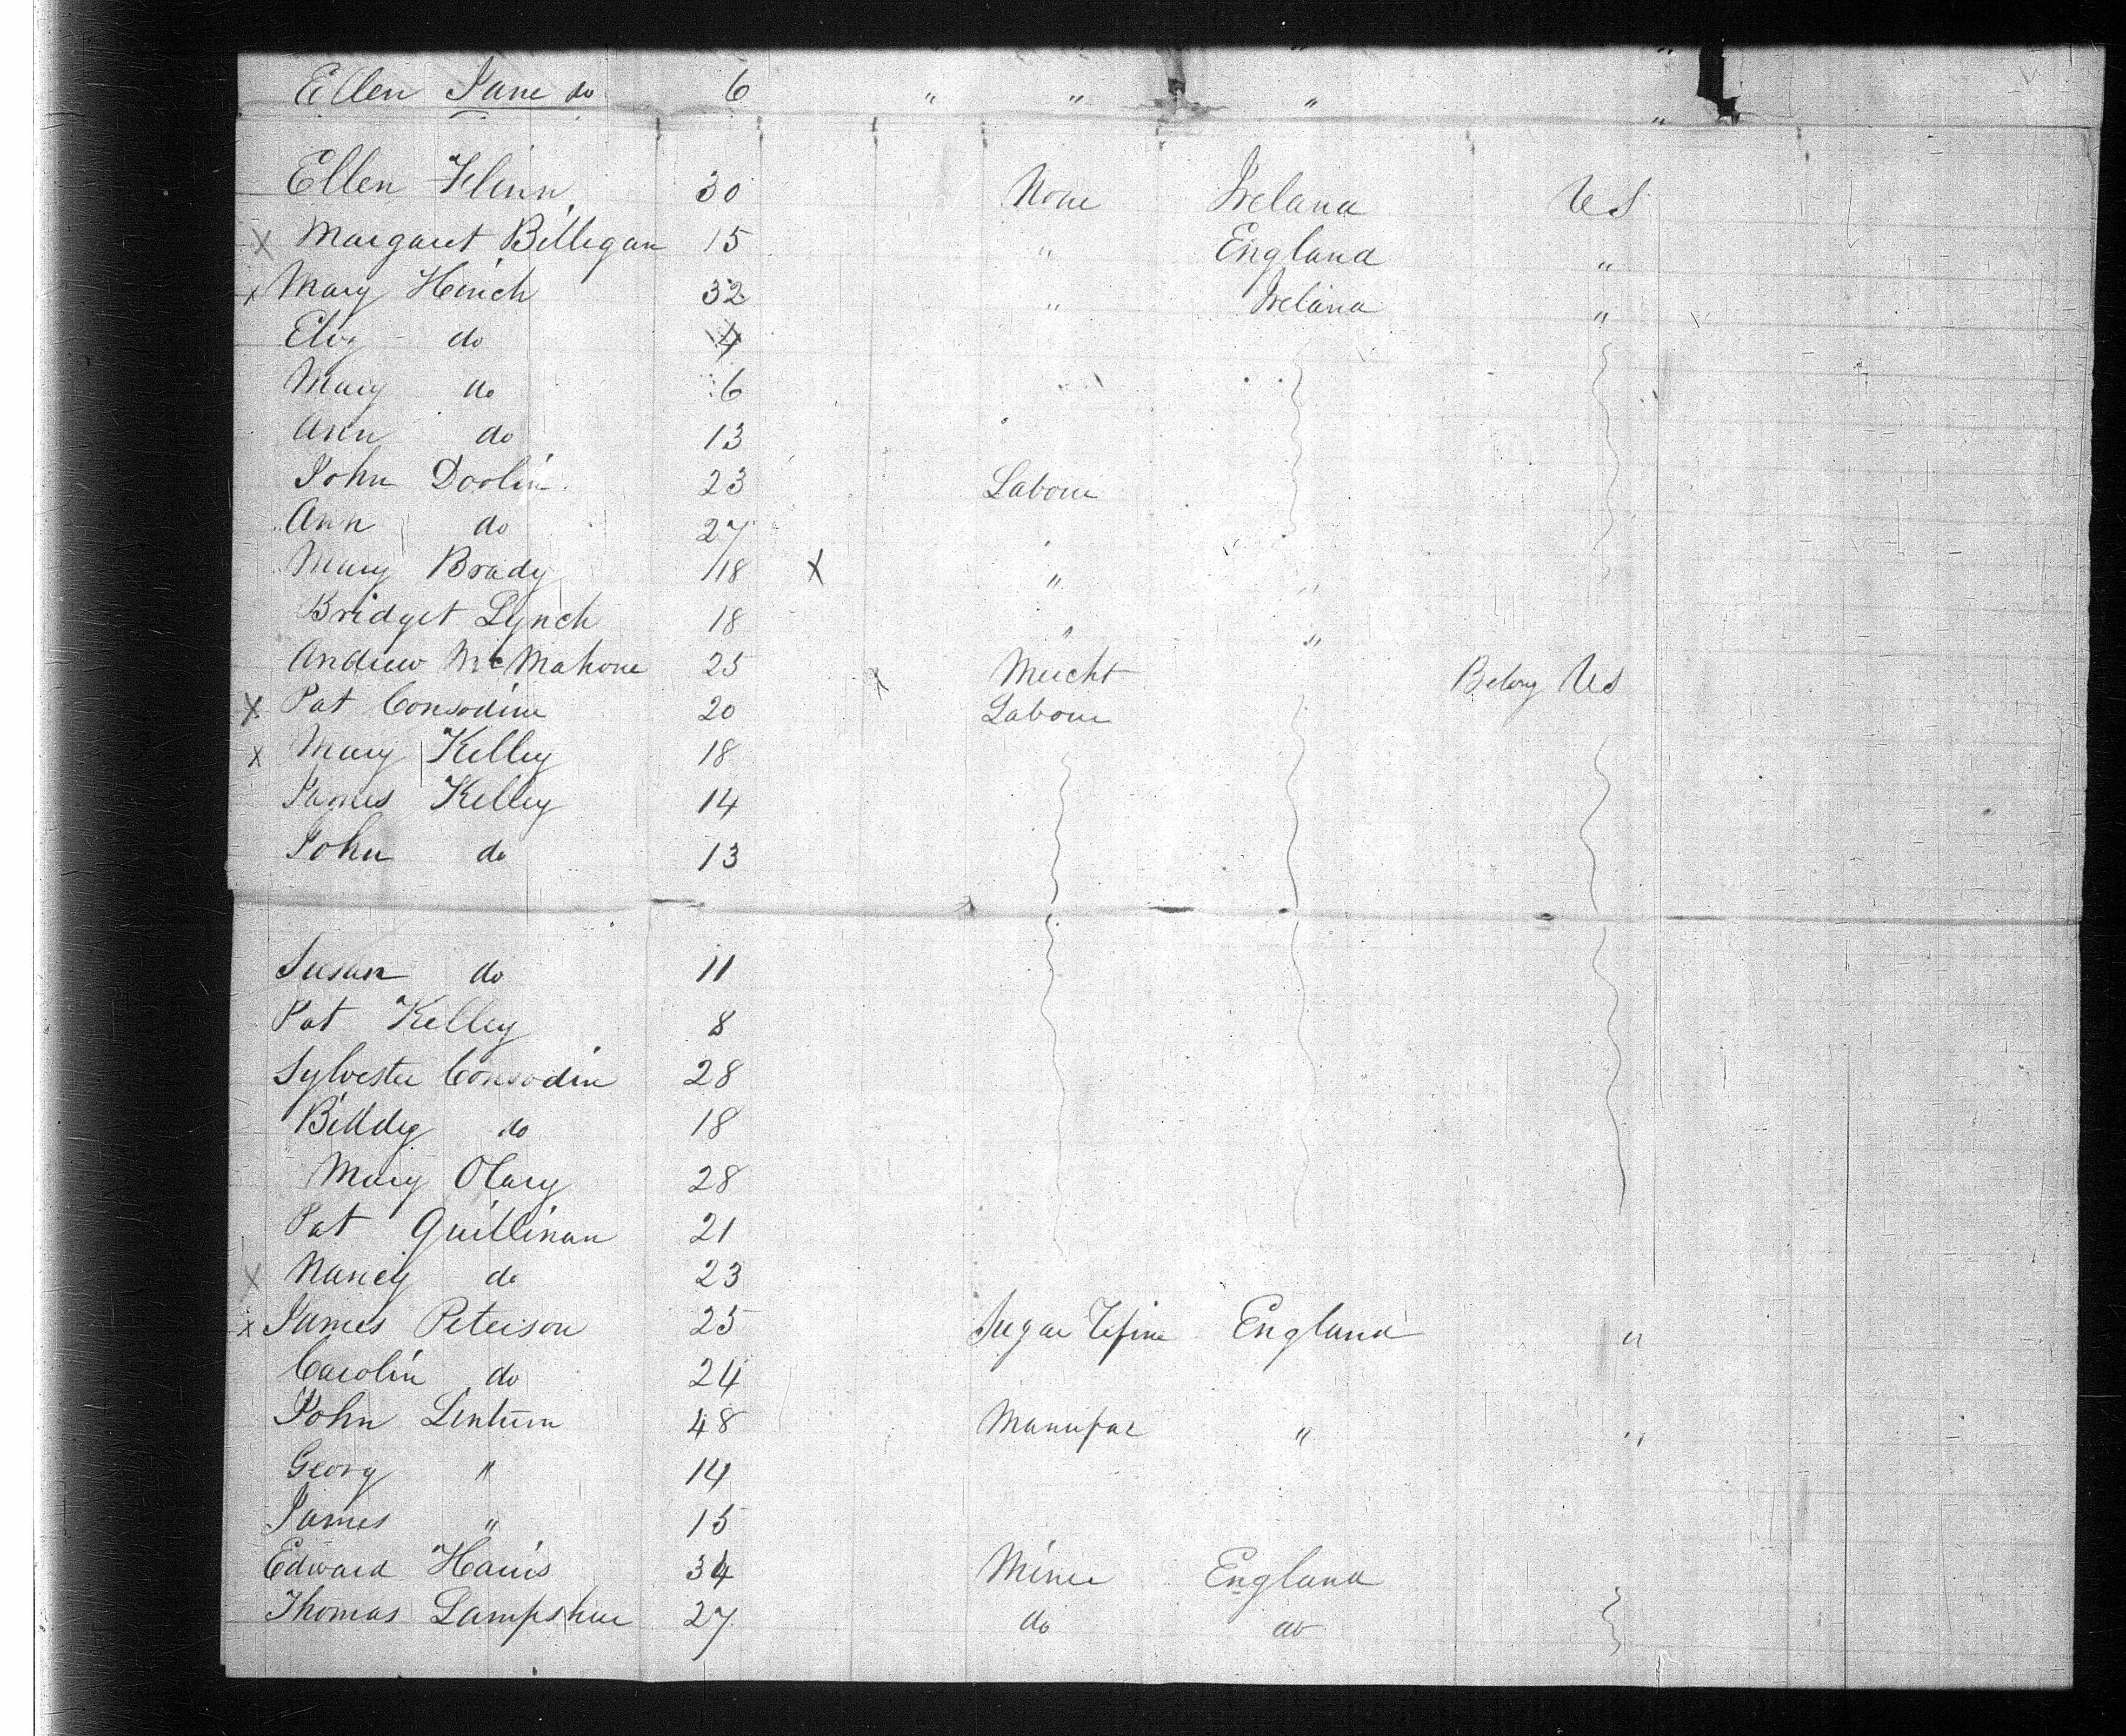 Ellen Jane do 6 " " " "
Ellen Flinn 30 None Ireland US
X Margaret Billigan 15 " England "
x Mary Hinch 32 " Ireland "
Eliz do 4
Mary do 6
Ann do 13
John Doolin 23 Labour
Ann do 27 "
Mary Brady 18 X " "
Bridget Lynch 18 " "
Andrew McMahone 25 x Mercht Belong US
X Pat Consodine 20 Labour
x Mary Kelley 18
James Kelley 14
John do 13
Susan do 11
Pat Kelley 8
Sylvester Consodin 28
Biddy do 18
Mary Olary 28
Pat Quillinan 21
X Nancy do 23
x James Peterson 25 Sugar Refine England "
Carolin do 24
John Lintum 48 Manufac " "
Georg " 14
James " 15
Edward Harris 34 Miner England
Thomas Lampshur 27 do do